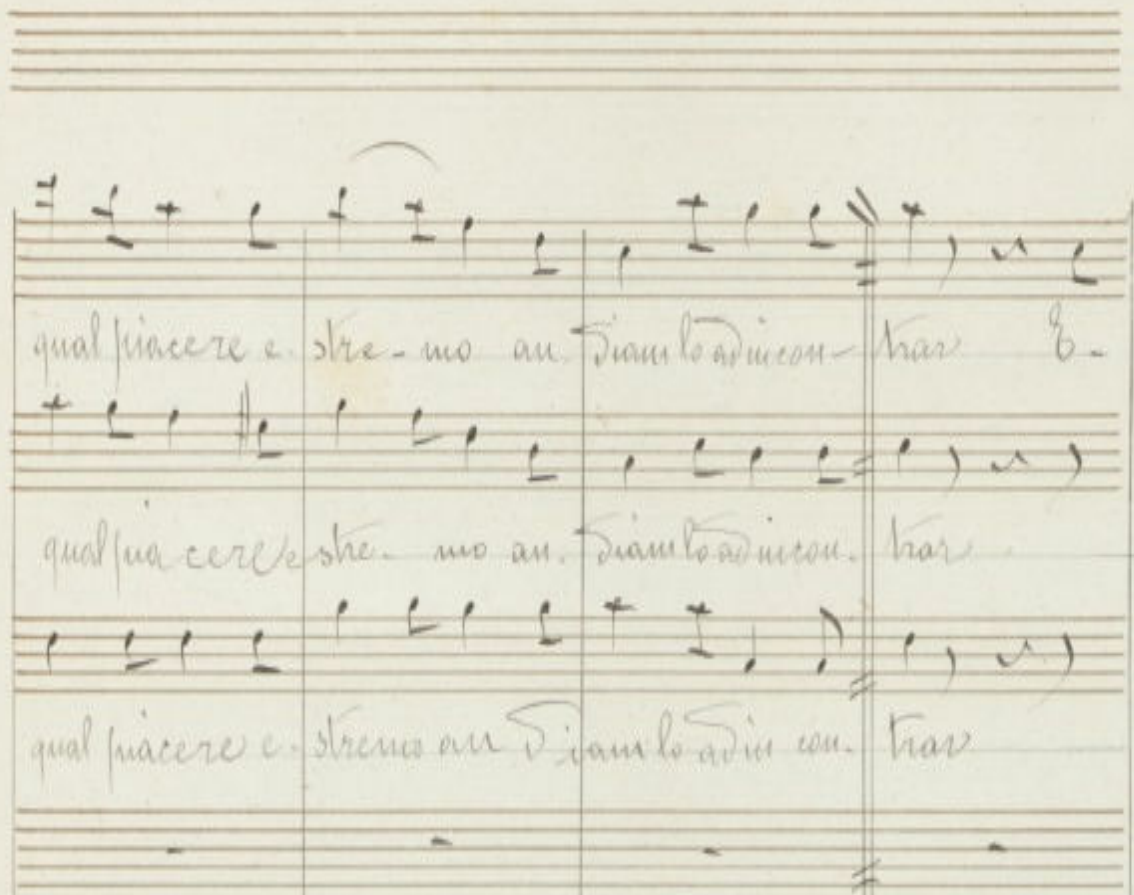 qual piacere e- stre- mo an- diamlo adincon- trar E-
qual piacere e stre- mo an- diamlo adincon- trar
qual piacere e- stremo an diamlo adin con- trar